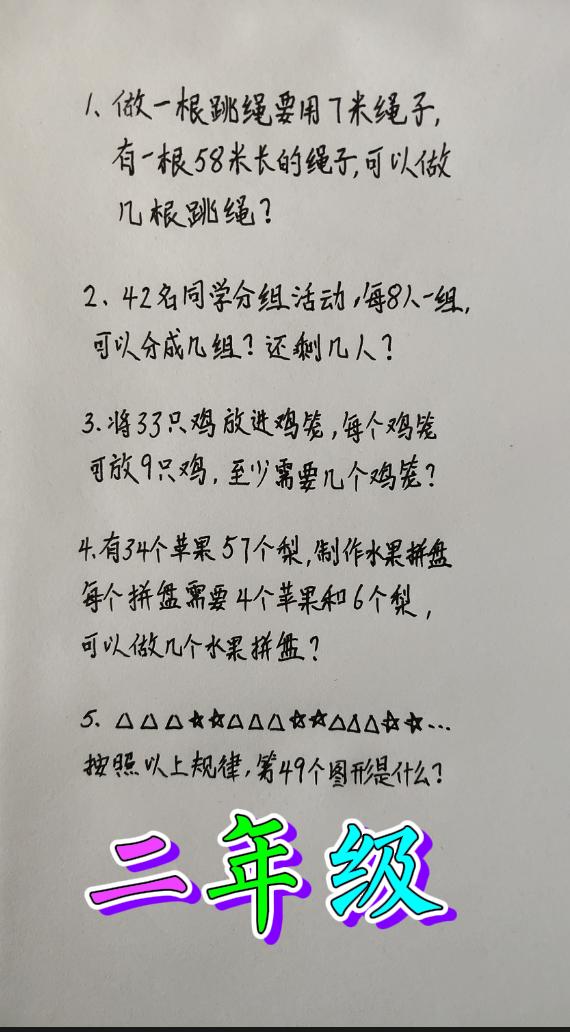 1、做一根跳绳要用7米绳子,
有一根58米长的绳子,可以做
几根跳绳?
2、42名同学分组活动,每8人一组,
可以分成几组?还剩几人?
3.将33只鸡放进鸡笼,每个鸡笼
可放9只鸡,至少需要几个鸡笼?
4.有34个苹果57个梨,制作水果拼盘
每个拼盘需要4个苹果和6个梨,
可以做几个水果拼盘?
5. △△△☆☆△△△☆☆△△△☆☆...
按照以上规律,第49个图形是什么?
二年级